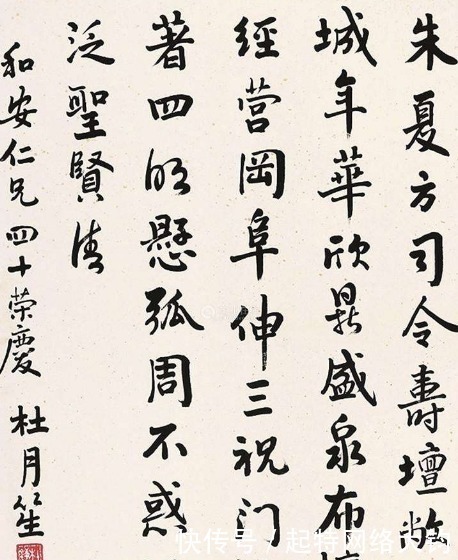 朱夏方司令壽壇
城年華欣鼎盛泉布
經營岡阜伸三祝门
著四明懸弧周不惑
泛聖賢清
和安仁兄四十荣慶 杜月笙
快传号/起特网络